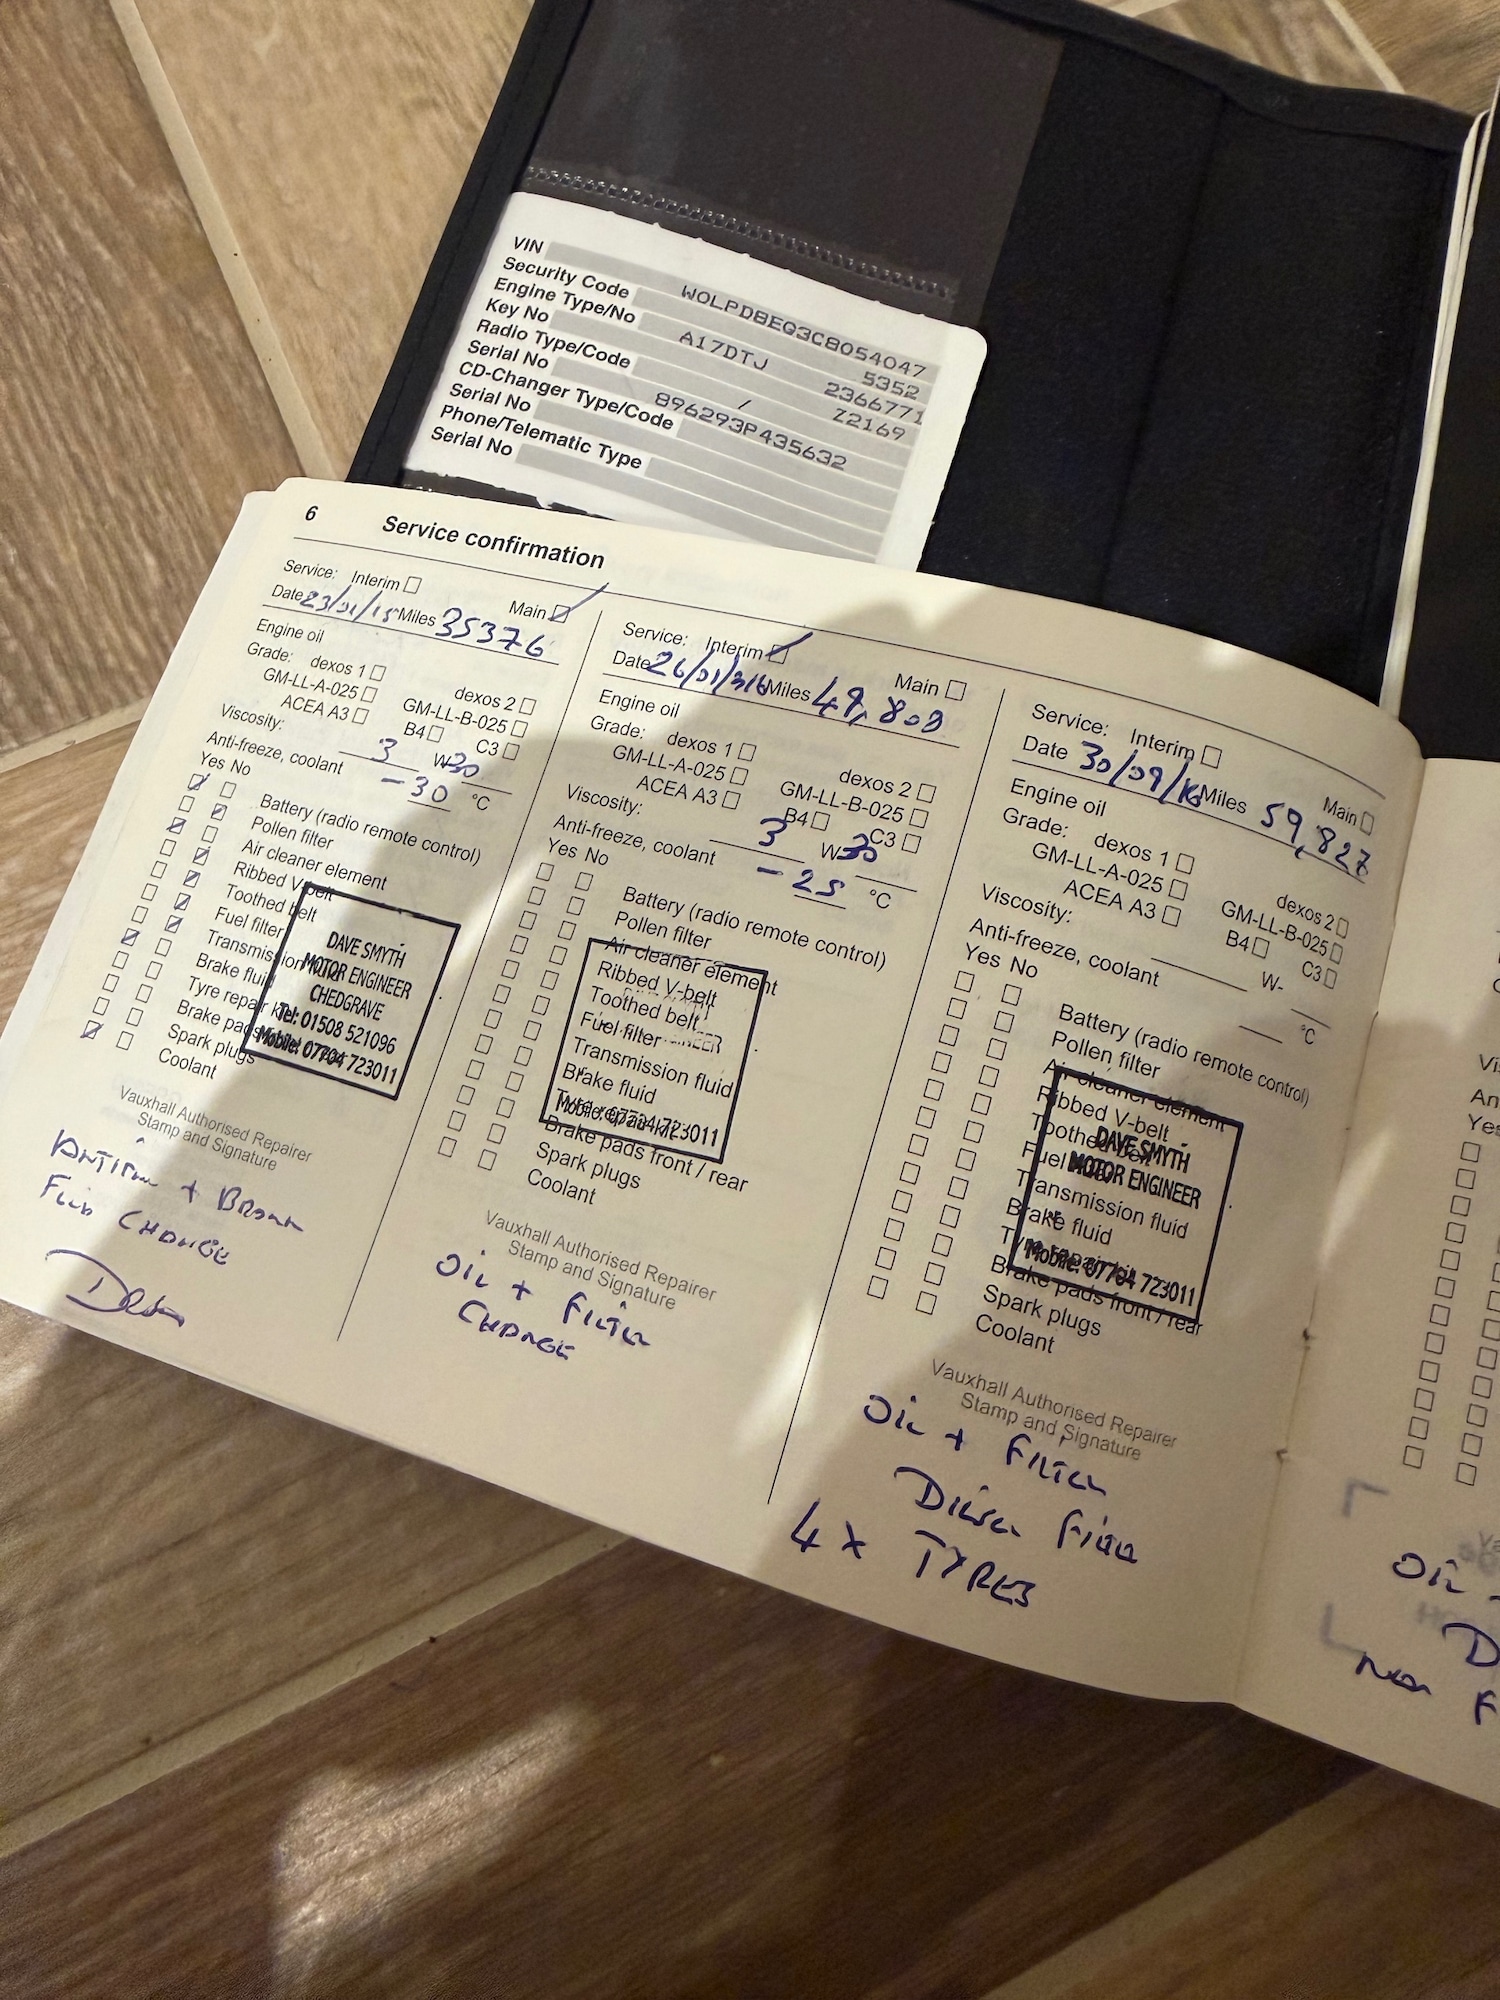 VIN WOLPD8EQ3C8054047
Security Code 5352
Engine Type/No A17DTJ 2366771
Key No Z2169
Radio Type/Code /
Serial No 896293P435632
CD-Changer Type/Code
Serial No
Phone/Telematic Type
Serial No
6 Service confirmation
Service: Interim Main
Date 23/01/15 Miles 35376
Engine oil
Grade: dexos 1 dexos 2
GM-LL-A-025 GM-LL-B-025
ACEA A3 B4 C3
Viscosity: 3 W-30
Anti-freeze, coolant -30 °C
Yes No
Battery (radio remote control)
Pollen filter
Air cleaner element
Ribbed V-belt
Toothed belt
Fuel filter
Transmission
Brake fluid
Tyre repair kit
Brake pads
Spark plugs
Coolant
DAVE SMYTH
MOTOR ENGINEER
CHEDGRAVE
Tel: 01508 521096
Mobile: 07704 723011
Vauxhall Authorised Repairer
Stamp and Signature
+
CHANGE
Service: Interim Main
Date 26/01/ Miles 49,808
Engine oil
Grade: dexos 1 dexos 2
GM-LL-A-025 GM-LL-B-025
ACEA A3 B4 C3
Viscosity: 3 W-30
Anti-freeze, coolant -25 °C
Yes No
Battery (radio remote control)
Pollen filter
Air cleaner element
Ribbed V-belt
Toothed belt
Fuel filter
Transmission fluid
Brake fluid
Tyre repair kit
Brake pads front / rear
Spark plugs
Coolant
Mobile: 07704 723011
Vauxhall Authorised Repairer
Stamp and Signature
OIL + FILTER
CHANGE
Service: Interim Main
Date 30/09/16 Miles 59,827
Engine oil
Grade: dexos 1 dexos 2
GM-LL-A-025 GM-LL-B-025
ACEA A3 B4 C3
Viscosity: W-
Anti-freeze, coolant °C
Yes No
Battery (radio remote control)
Pollen filter
Air cleaner element
Ribbed V-belt
Toothed belt
Fuel
Transmission fluid
Brake fluid
Tyre repair kit
Brake pads front / rear
Spark plugs
Coolant
DAVE SMYTH
MOTOR ENGINEER
Mobile: 07704 723011
Vauxhall Authorised Repairer
Stamp and Signature
OIL + FILTER
DIESEL FILTER
4 x TYRES
Vi
An
Yes
OIL